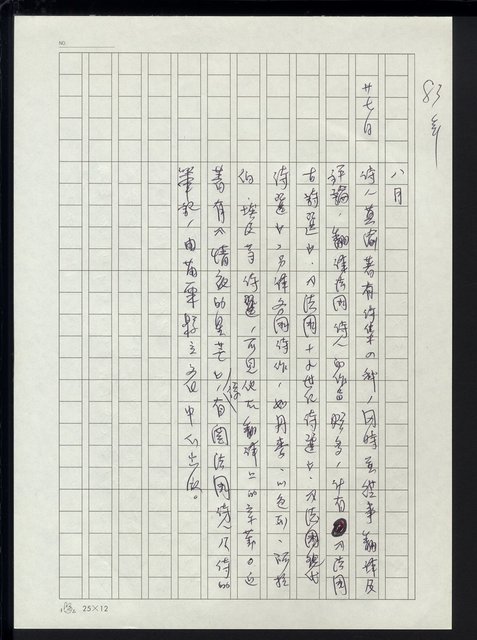 83年
八月
廿七日
詩人莫渝著有詩集四種,同時並從事翻譯及
評論,翻譯法國詩人的作品頗多,計有《法國
古詩選》、《法國十九世紀詩選》、《法國現代
詩選》,另譯各國詩作,如丹麥、以色列、阿拉
伯、埃及等詩選,可見他在翻譯上的辛勤。近
著有《情夜的星芒》,係有關法國詩人及詩的
筆記,由苗栗縣立文化中心出版。
NO.
25×12